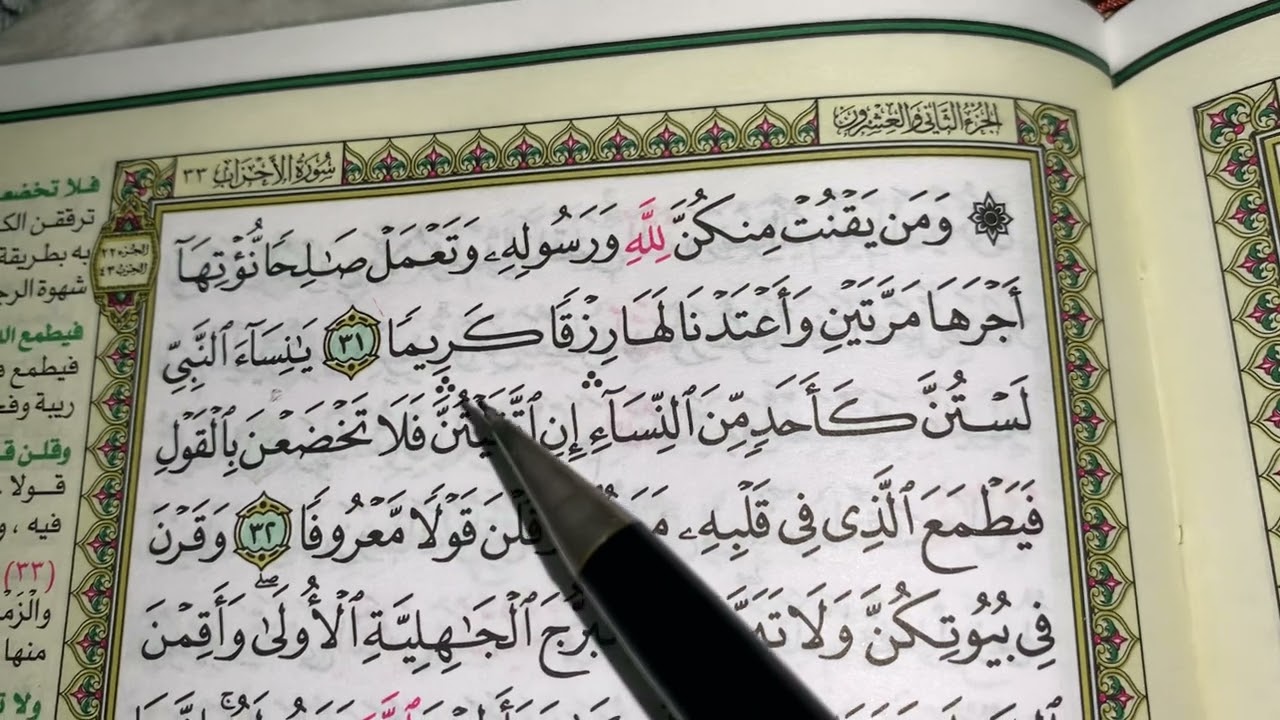 الجزء الثاني والعشرون
سورة الأحزاب ٣٣
۞ وَمَن يَقْنُتْ مِنكُنَّ لِلَّهِ وَرَسُولِهِۦ وَتَعْمَلْ صَٰلِحًا نُّؤْتِهَآ
أَجْرَهَا مَرَّتَيْنِ وَأَعْتَدْنَا لَهَا رِزْقًا كَرِيمًا ٣١ يَٰنِسَآءَ ٱلنَّبِيِّ
لَسْتُنَّ كَأَحَدٍ مِّنَ ٱلنِّسَآءِ ۛ إِنِ ٱتَّقَيْتُنَّ ۛ فَلَا تَخْضَعْنَ بِٱلْقَوْلِ
فَيَطْمَعَ ٱلَّذِى فِى قَلْبِهِۦ وَقُلْنَ قَوْلًا مَّعْرُوفًا ٣٢ وَقَرْنَ
فِى بُيُوتِكُنَّ وَلَا تَبَرُّجَ ٱلْجَٰهِلِيَّةِ ٱلْأُولَىٰ ۖ وَأَقِمْنَ
الجزء ٢٢
الحزب ٤٣
فلا تخضعـ
ترققن الكـ
به بطريقة
شهوة الرجـ
فيطمع الذ
فيطمع فـ
ريبة وفجـ
وقلن قـ
قولا
فيه ، و
(٣٣)
منها
ولا تـ